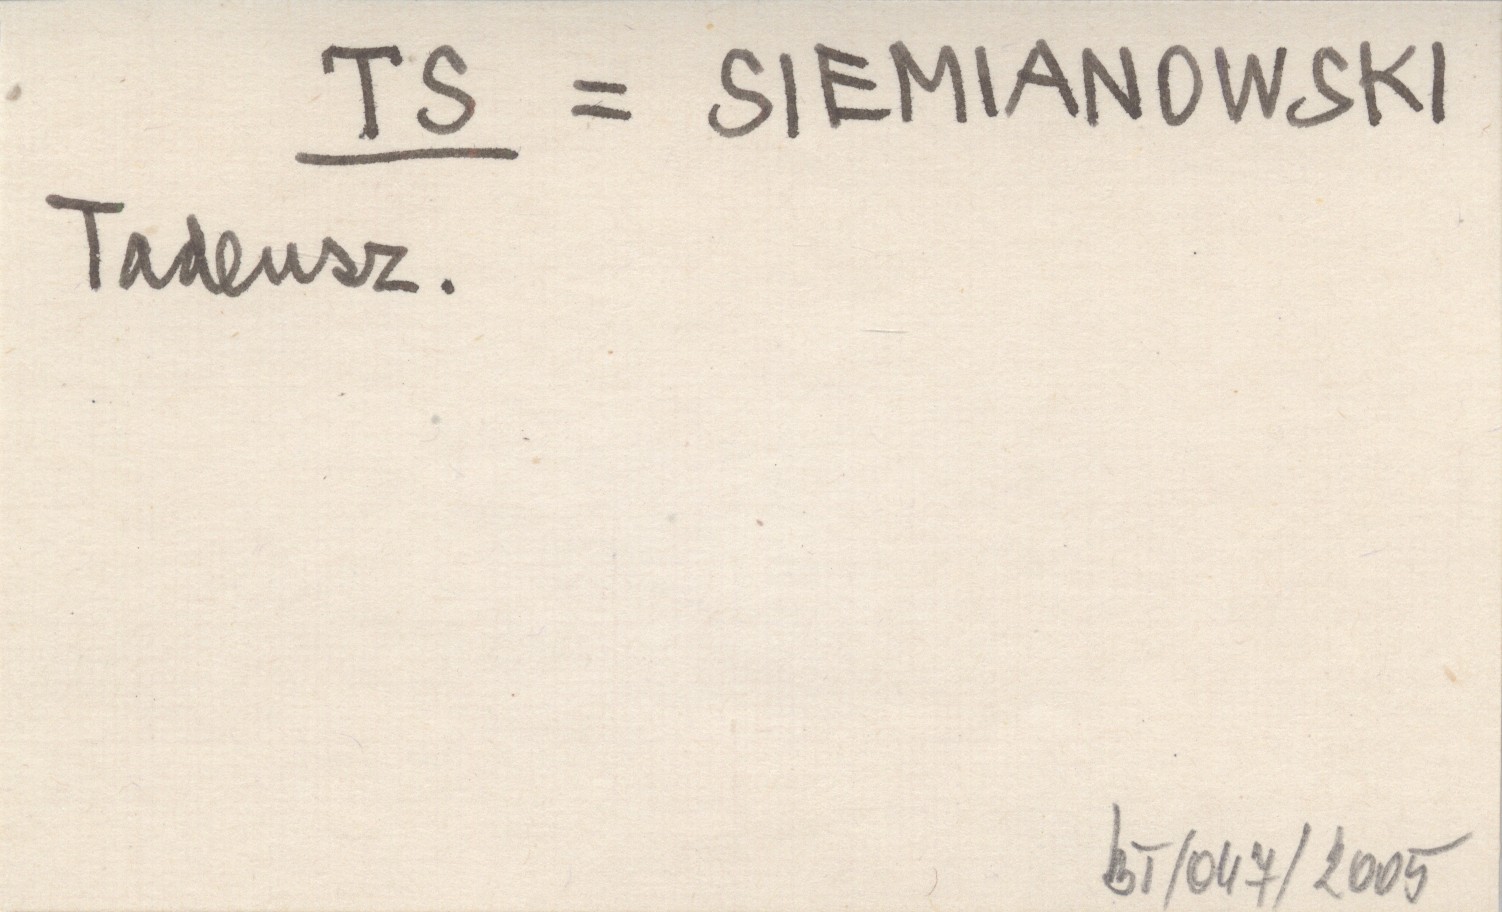 TS = SIEMIANOWSKI
Tadeusz.
bT/047/2005